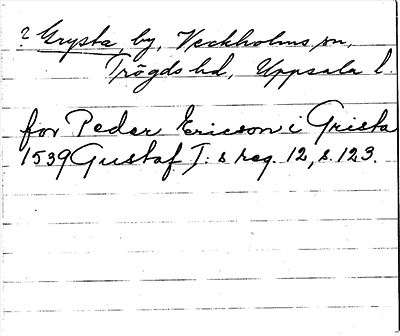 ? Grysta, by, Veckholms sn,
Trögds hd, Uppsala l.
for Peder Ericson i Grista
1539 Gustaf I: s reg. 12, s. 123.